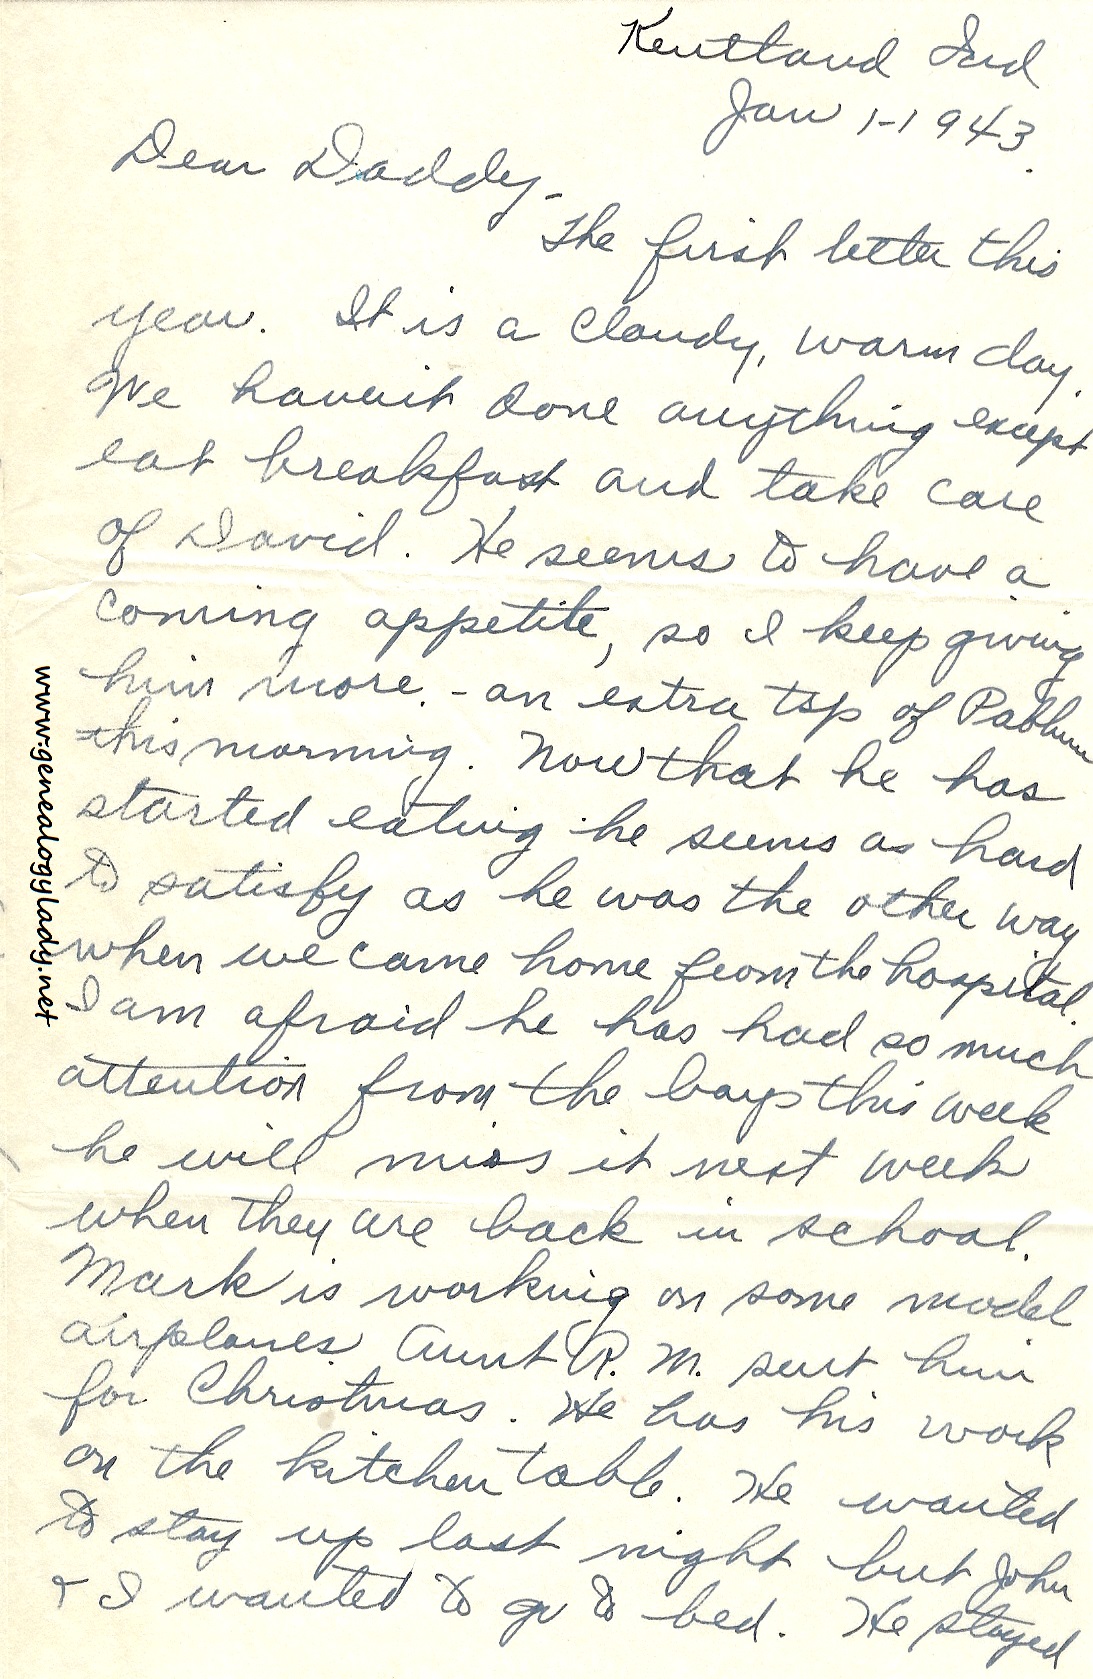 Kentland Ind
Jan 1-1943.
Dear Daddy-
The first letter this
year. It is a cloudy, warm day.
We haven't done anything except
eat breakfast and take care
of David. He seems to have a
coming appetite, so I keep giving
him more. - an extra tsp of Pablum
this morning. Now that he has
started eating he seems as hard
to satisfy as he was the other way
when we came home from the hospital.
I am afraid he has had so much
attention from the boys this week
he will miss it next week
when they are back in school.
Mark is working on some model
airplanes Aunt R. M. sent him
for Christmas. He has his work
on the kitchen table. He wanted
to stay up last night but John
+ I wanted to go to bed. He stayed
www.genealogylady.net